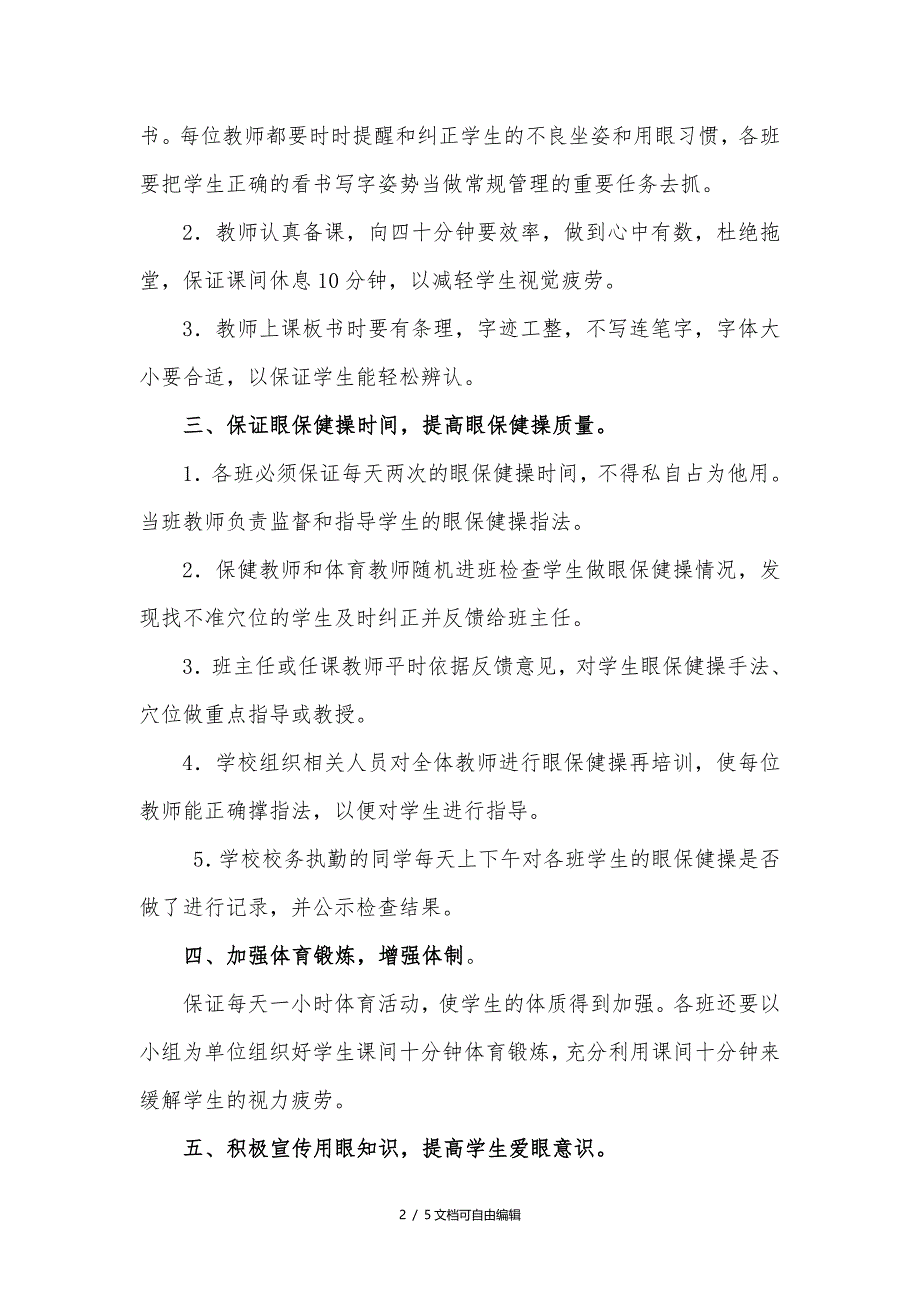 书。每位教师都要时时提醒和纠正学生的不良坐姿和用眼习惯，各班
要把学生正确的看书写字姿势当做常规管理的重要任务去抓。
2．教师认真备课，向四十分钟要效率，做到心中有数，杜绝拖
堂，保证课间休息10分钟，以减轻学生视觉疲劳。
3．教师上课板书时要有条理，字迹工整，不写连笔字，字体大
小要合适，以保证学生能轻松辨认。
三、保证眼保健操时间，提高眼保健操质量。
1．各班必须保证每天两次的眼保健操时间，不得私自占为他用。
当班教师负责监督和指导学生的眼保健操指法。
2．保健教师和体育教师随机进班检查学生做眼保健操情况，发
现找不准穴位的学生及时纠正并反馈给班主任。
3．班主任或任课教师平时依据反馈意见，对学生眼保健操手法、
穴位做重点指导或教授。
4．学校组织相关人员对全体教师进行眼保健操再培训，使每位
教师能正确撑指法，以便对学生进行指导。
5．学校校务执勤的同学每天上下午对各班学生的眼保健操是否
做了进行记录，并公示检查结果。
四、加强体育锻炼，增强体制。
保证每天一小时体育活动，使学生的体质得到加强。各班还要以
小组为单位组织好学生课间十分钟体育锻炼，充分利用课间十分钟来
缓解学生的视力疲劳。
五、积极宣传用眼知识，提高学生爱眼意识。
2 / 5文档可自由编辑